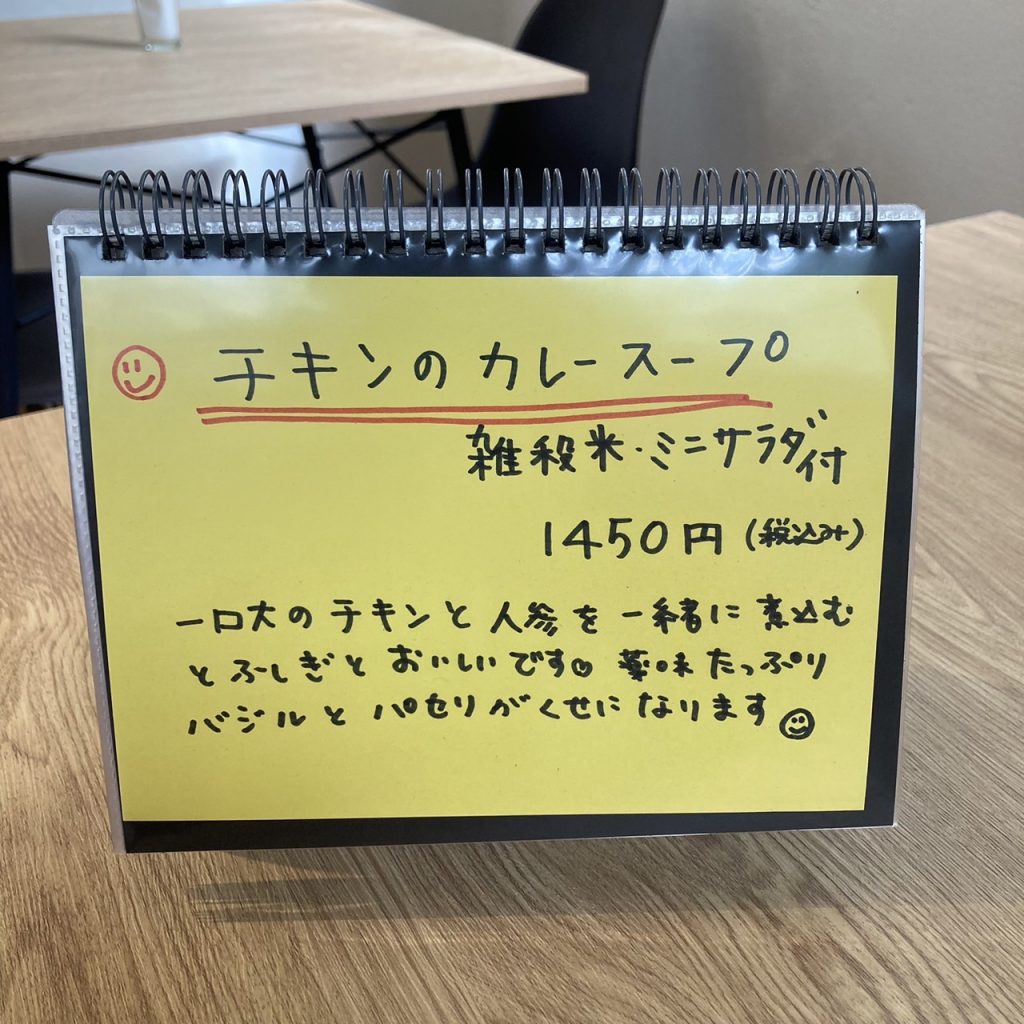 チキンのカレースープ
雑穀米・ミニサラダ付
1450円(税込み)
一口大のチキンと人参を一緒に煮込む
とふしぎとおいしいです♡薬味たっぷり
バジルとパセリがくせになります